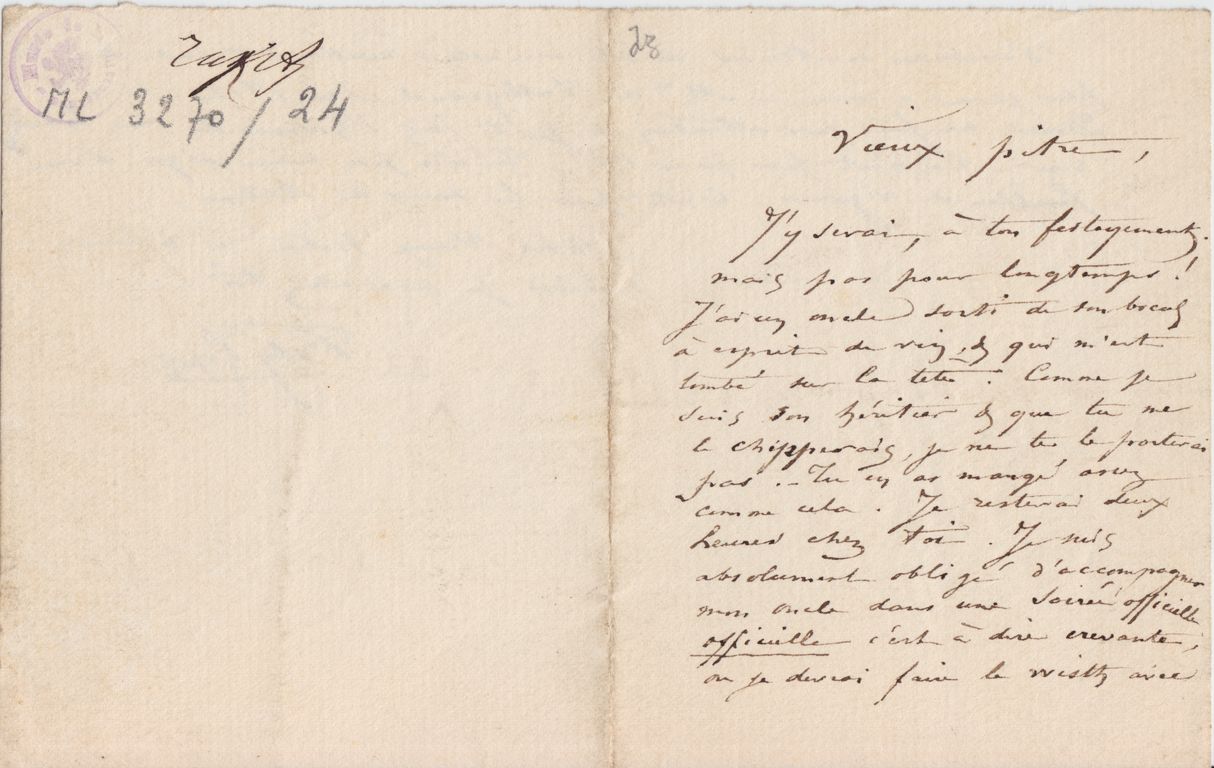 ML 3270/24
28
Vieux pitre,
J'y serai, à ton festoyement,
mais pas pour longtemps!
J'ai un oncle sorti de son bocal
à esprit de vin, & qui m'est
tombé sur la tête. Comme je
suis son héritier & que tu me
le chipperais, je ne te le porterai
pas. _ Tu en as mangé assez
comme cela. Je resterai deux
heures chez toi. Je suis
absolument obligé d'accompagner
mon oncle dans une soirée officielle
officielle c'est à dire crevante,
ou je devrai faire le wisth avec